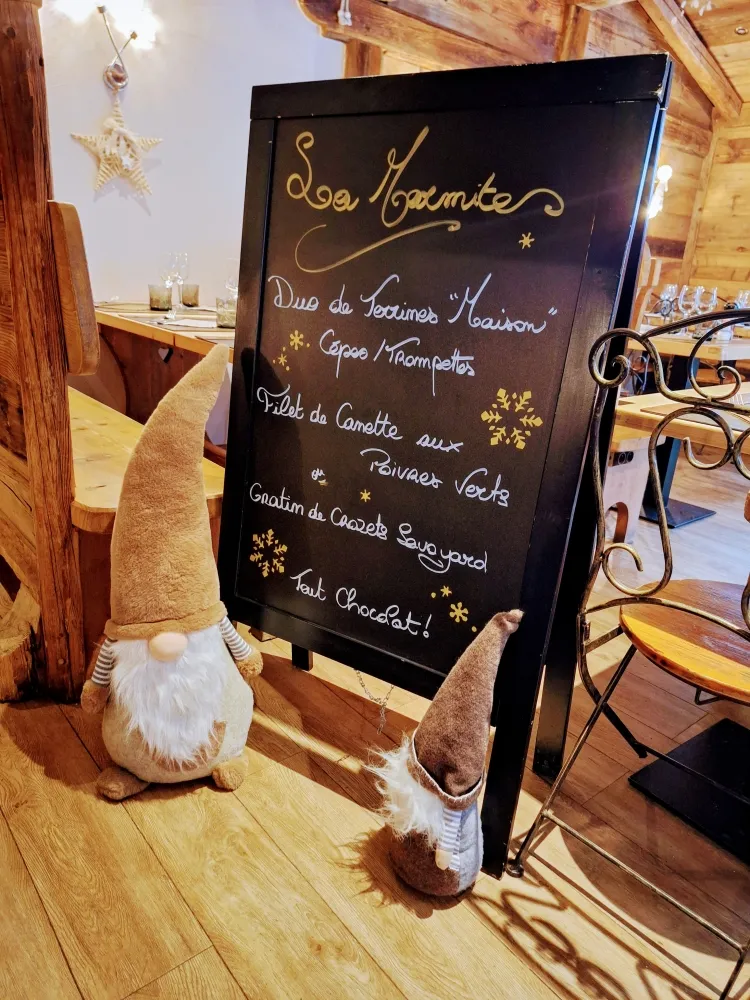 La Marmite
Duo de Terrines "Maison"
Cèpes / Trompettes
Filet de Canette aux
Poivres Verts
ou
Gratin de Crozets Savoyard
Tout Chocolat!